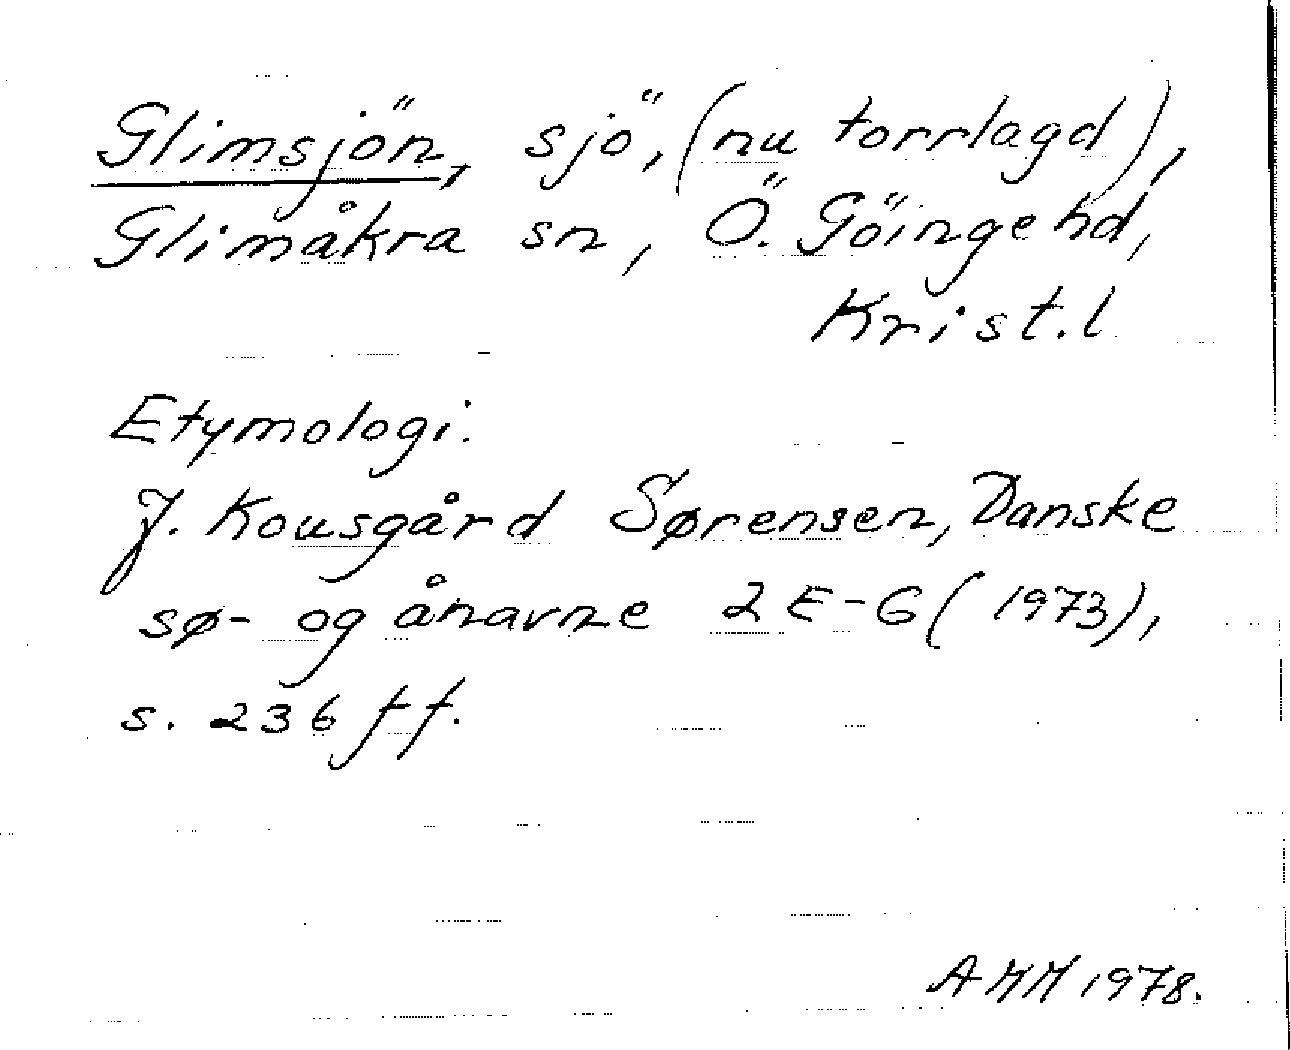 Glimsjön, sjö, (nu torrlagd),
Glimåkra sn, Ö. Göinge hd,
Krist. l
Etymologi:
J. Kousgård Sørensen, Danske
sø- og ånavne 2 E-G (1973),
s. 236 ff.
1978.